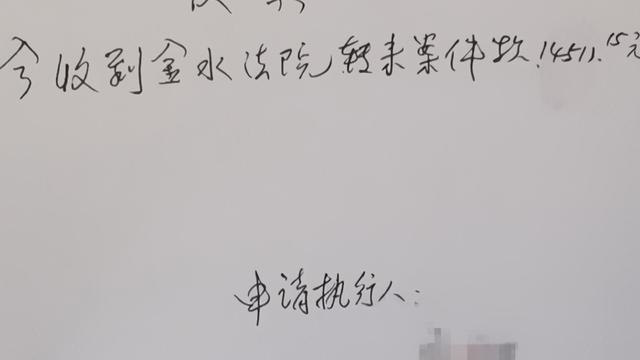 今收到金水法院转来案件款14511.15元
申请执行人: